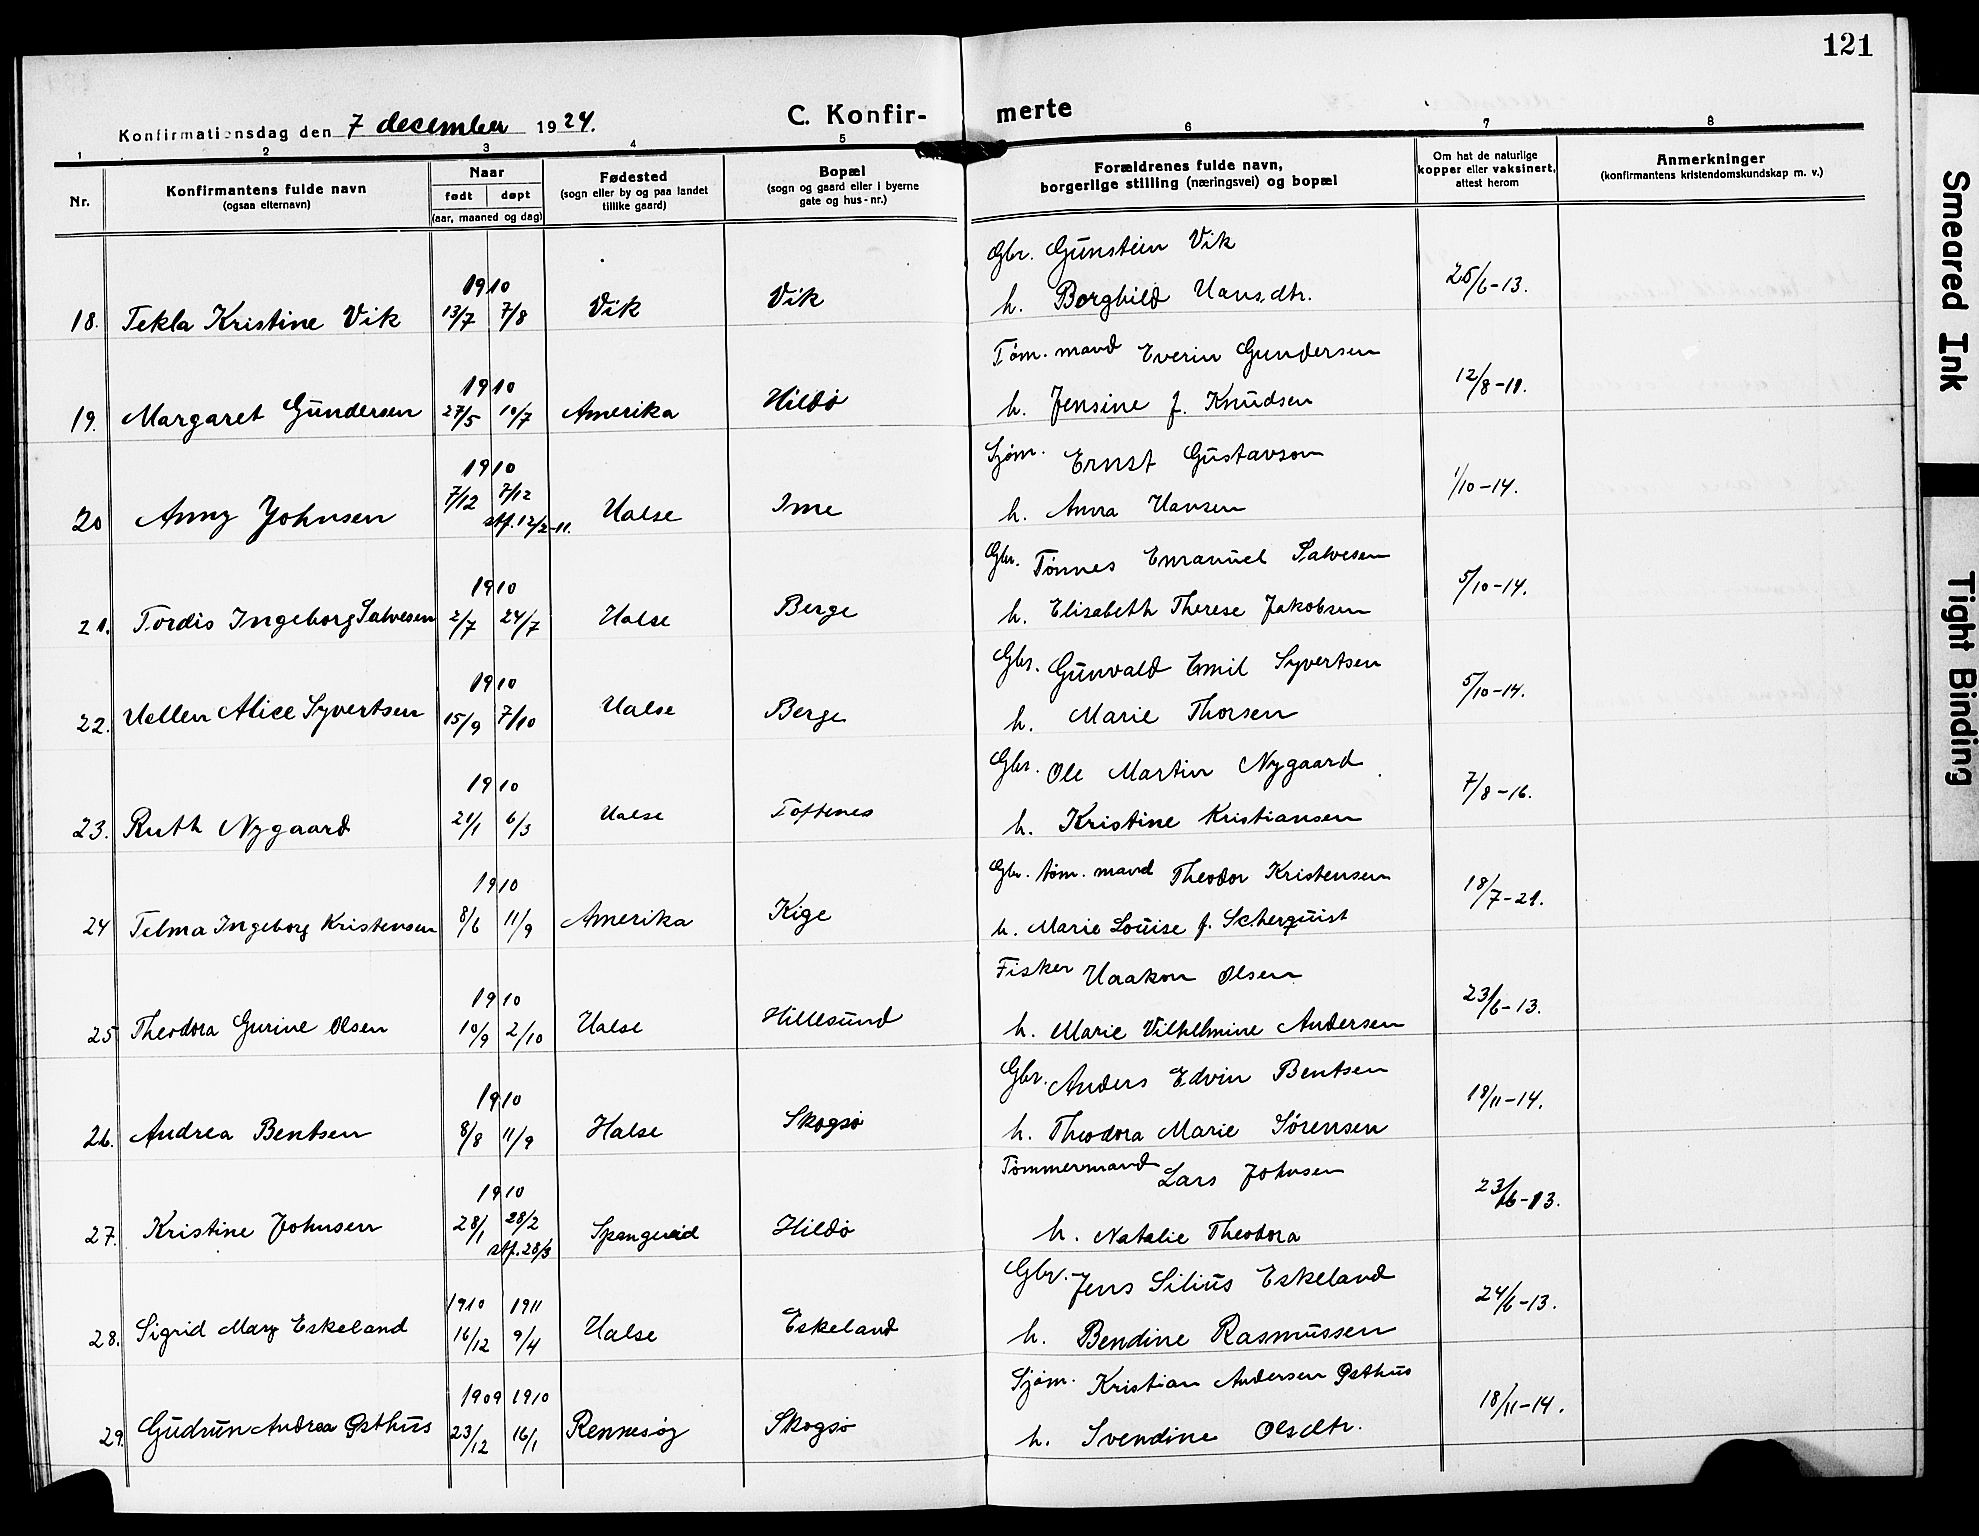 121
Konfirmationsdag den 7 december 1924.
C. Konfir- merte
1 2 3 4 5 6 7 8
Nr.
Konfirmantens fulde navn
(ogsaa efternavn)
Naar
født døpt
(aar, maaned og dag)
Fødested
(sogn eller by og paa landet
tillike gaard)
Bopæl
(sogn og gaard eller i byerne
gate og hus-nr.)
Forældrenes fulde navn,
borgerlige stilling (næringsvei) og bopæl
Om hat de naturlige
kopper eller vaksinert,
attest herom
Anmerkninger
(konfirmantens kristendomskundskap m. v.)
Gbr. Gunstein Vik
1910
18. Tekla Kristine Vik 13/7 7/8 Vik Vik h. Borghild Hansdtr. 25/6-13.
Tøm. mand Everin Gundersen
1910
19. Margaret Gundersen 27/5 10/7 Amerika Hildø h. Jensine f. Knudsen 12/8-11.
Sjøm. Ernst Gustavson
1910
7/12 7/12
20 Anny Johnsen stf. 12/2-11. Halse Ime h. Anna Hansen 1/10-14.
Gbr. Tønnes Emanuel Salvesen
1910
21. Tordis Ingeborg Salvesen 2/7 24/7 Halse Berge h. Elisabeth Therese Jakobsen 5/10-14.
Gbr. Gunvald Emil Syvertsen
1910
22. Hellen Alice Syvertsen 15/9 7/10 Halse Berge h. Marie Thorsen 5/10-14.
Gbr. Ole Martin Nygaard
1910
23. Ruth Nygaard 21/1 6/3 Halse Toftenes h. Kristine Kristiansen 7/8-16.
Gbr. tøm. mand Theodor Kristensen
1910
24 Telma Ingeborg Kristensen 8/6 11/9 Amerika Kige h. Marie Louise f. Scherquist 18/7-21.
Fisker Haakon Olsen
1910
25 Theodora Gurine Olsen 10/9 2/10 Halse Hillesund h. Marie Vilhelmine Andersen 23/6-13.
Gbr. Anders Edvin Bentsen
1910
26. Andrea Bentsen 8/8 11/9 Halse Skogsø h. Theodora Marie Sørensen 18/11-14.
Tømmermand Lars Johnsen
1910
27. Kristine Johnsen 28/1 28/2 Spangereid Hildø h. Natalie Theodora 23/6-13.
stf. 28/3
Gbr. Jens Silius Eskeland
1910 1911
28. Sigrid Mary Eskeland 16/12 9/4 Halse Eskeland h. Bendine Rasmussen 24/6-13.
Sjøm. Kristian Andersen Østhus
1909 1910
29. Gudrun Andrea Østhus 23/12 16/1 Rennesøy Skogsø h. Svendine Olsdtr. 18/11-14.
Smeared Ink
Tight Binding